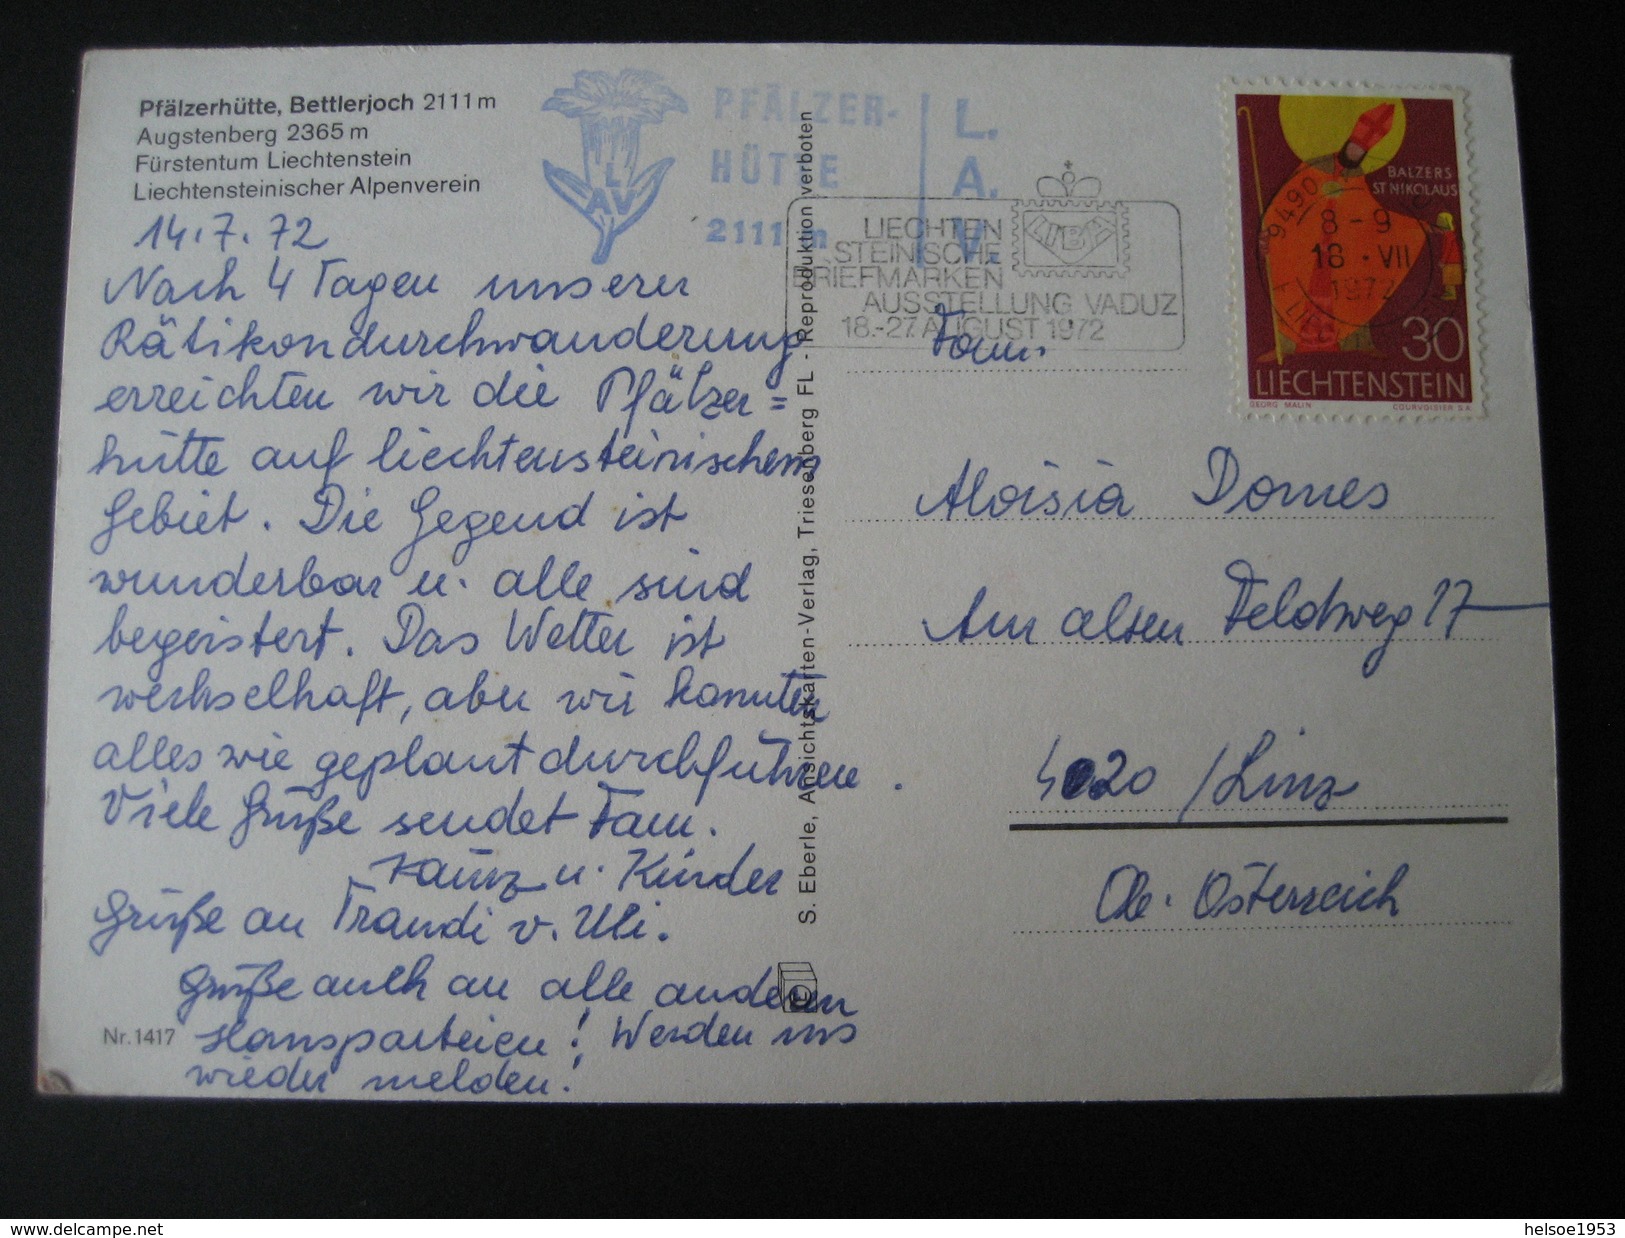 Pfälzerhütte, Bettlerjoch 2111 m
Augstenberg 2365 m
Fürstentum Liechtenstein
Liechtensteinischer Alpenverein
14.7.72
Nach 4 Tagen unserer
Rätikondurchwanderung
erreichten wir die Pfälzer=
hütte auf liechtensteinischem
Gebiet. Die Gegend ist
wunderbar u. alle sind
begeistert. Das Wetter ist
wechselhaft, aber wir konnten
alles wie geplant durchführen.
Viele Grüße sendet Fam.
u. Kinder
Grüße an Traudi v. Uli.
Grüße auch an alle anderen
Hausparteien! Werden uns
wieder melden!
Nr. 1417
LAV
PFÄLZER-
HÜTTE
2111 m
L.
A.
V.
S. Eberle, Ansichtskarten-Verlag, Triesenberg FL - Reproduktion verboten
LIECHTEN
STEINISCHE
BRIEFMARKEN
AUSSTELLUNG VADUZ
18.-27. AUGUST 1972
LIBA
9490
8 - 9
18 · VII
1972
BALZERS
ST NIKOLAUS
30
LIECHTENSTEIN
GEORG MALIN
COURVOISIER S.A.
Fam.
Aloisia Domes
Am alten Feldweg 17
4020 / Linz
Ob. Österreich
delcampe.net
helsoe1953